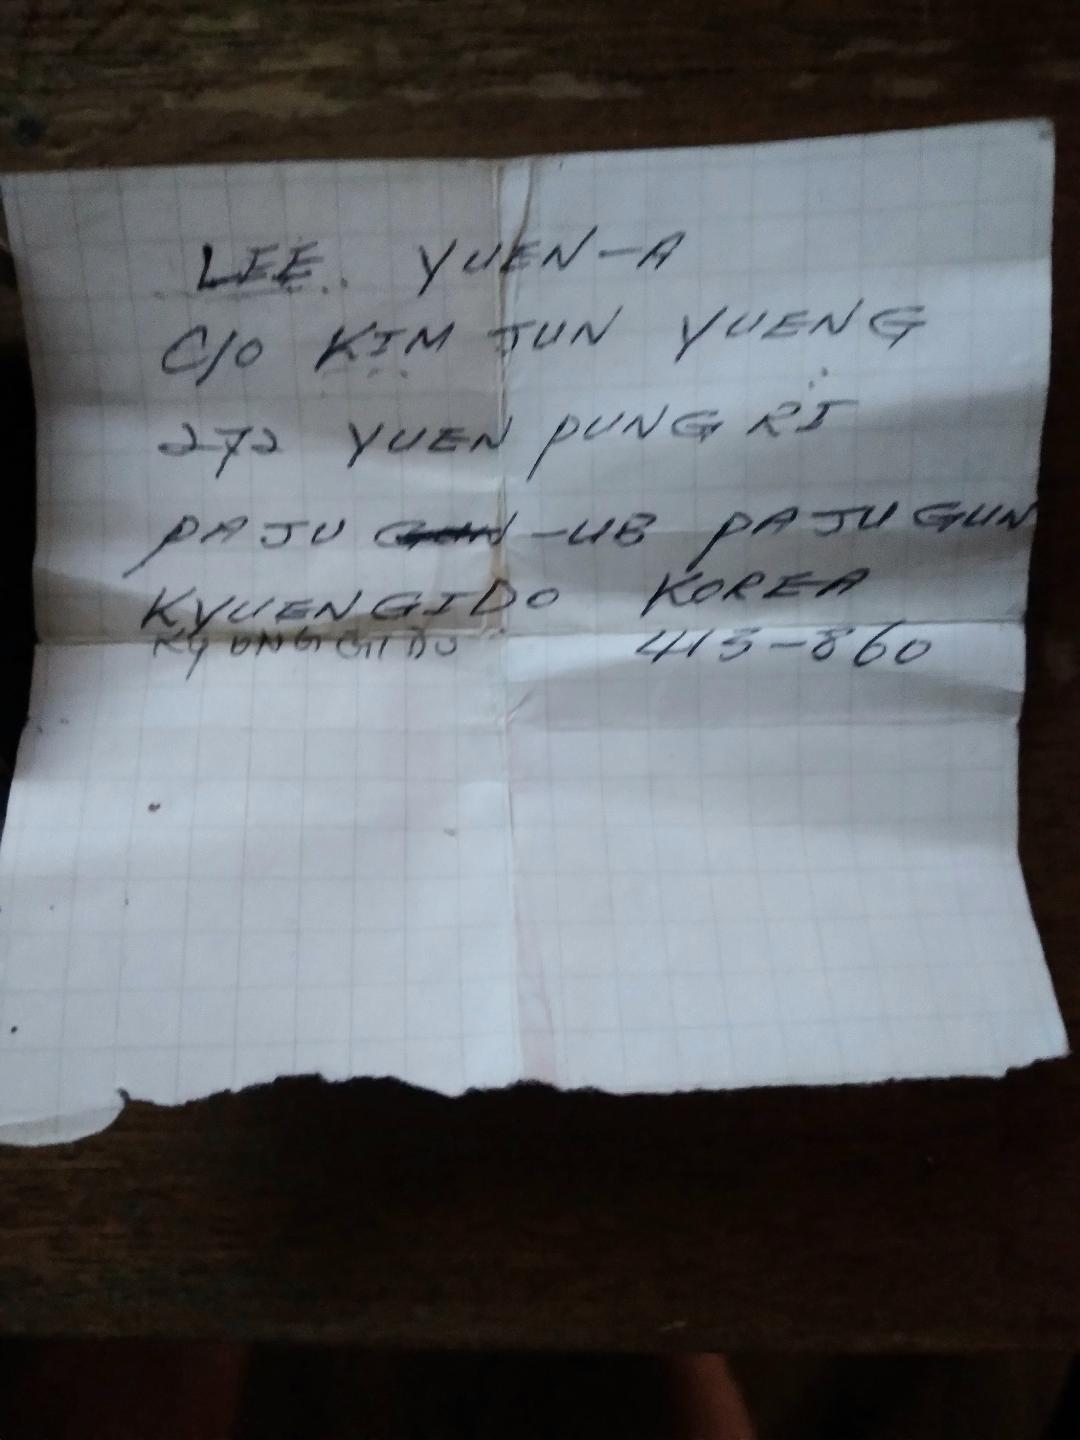 LEE YUEN-A
C/O KIM JUN YUENG
272 YUEN PUNG RI
PAJU -UB PAJU GUN
KYUENGIDO KOREA
KYONGGIDO 413-860